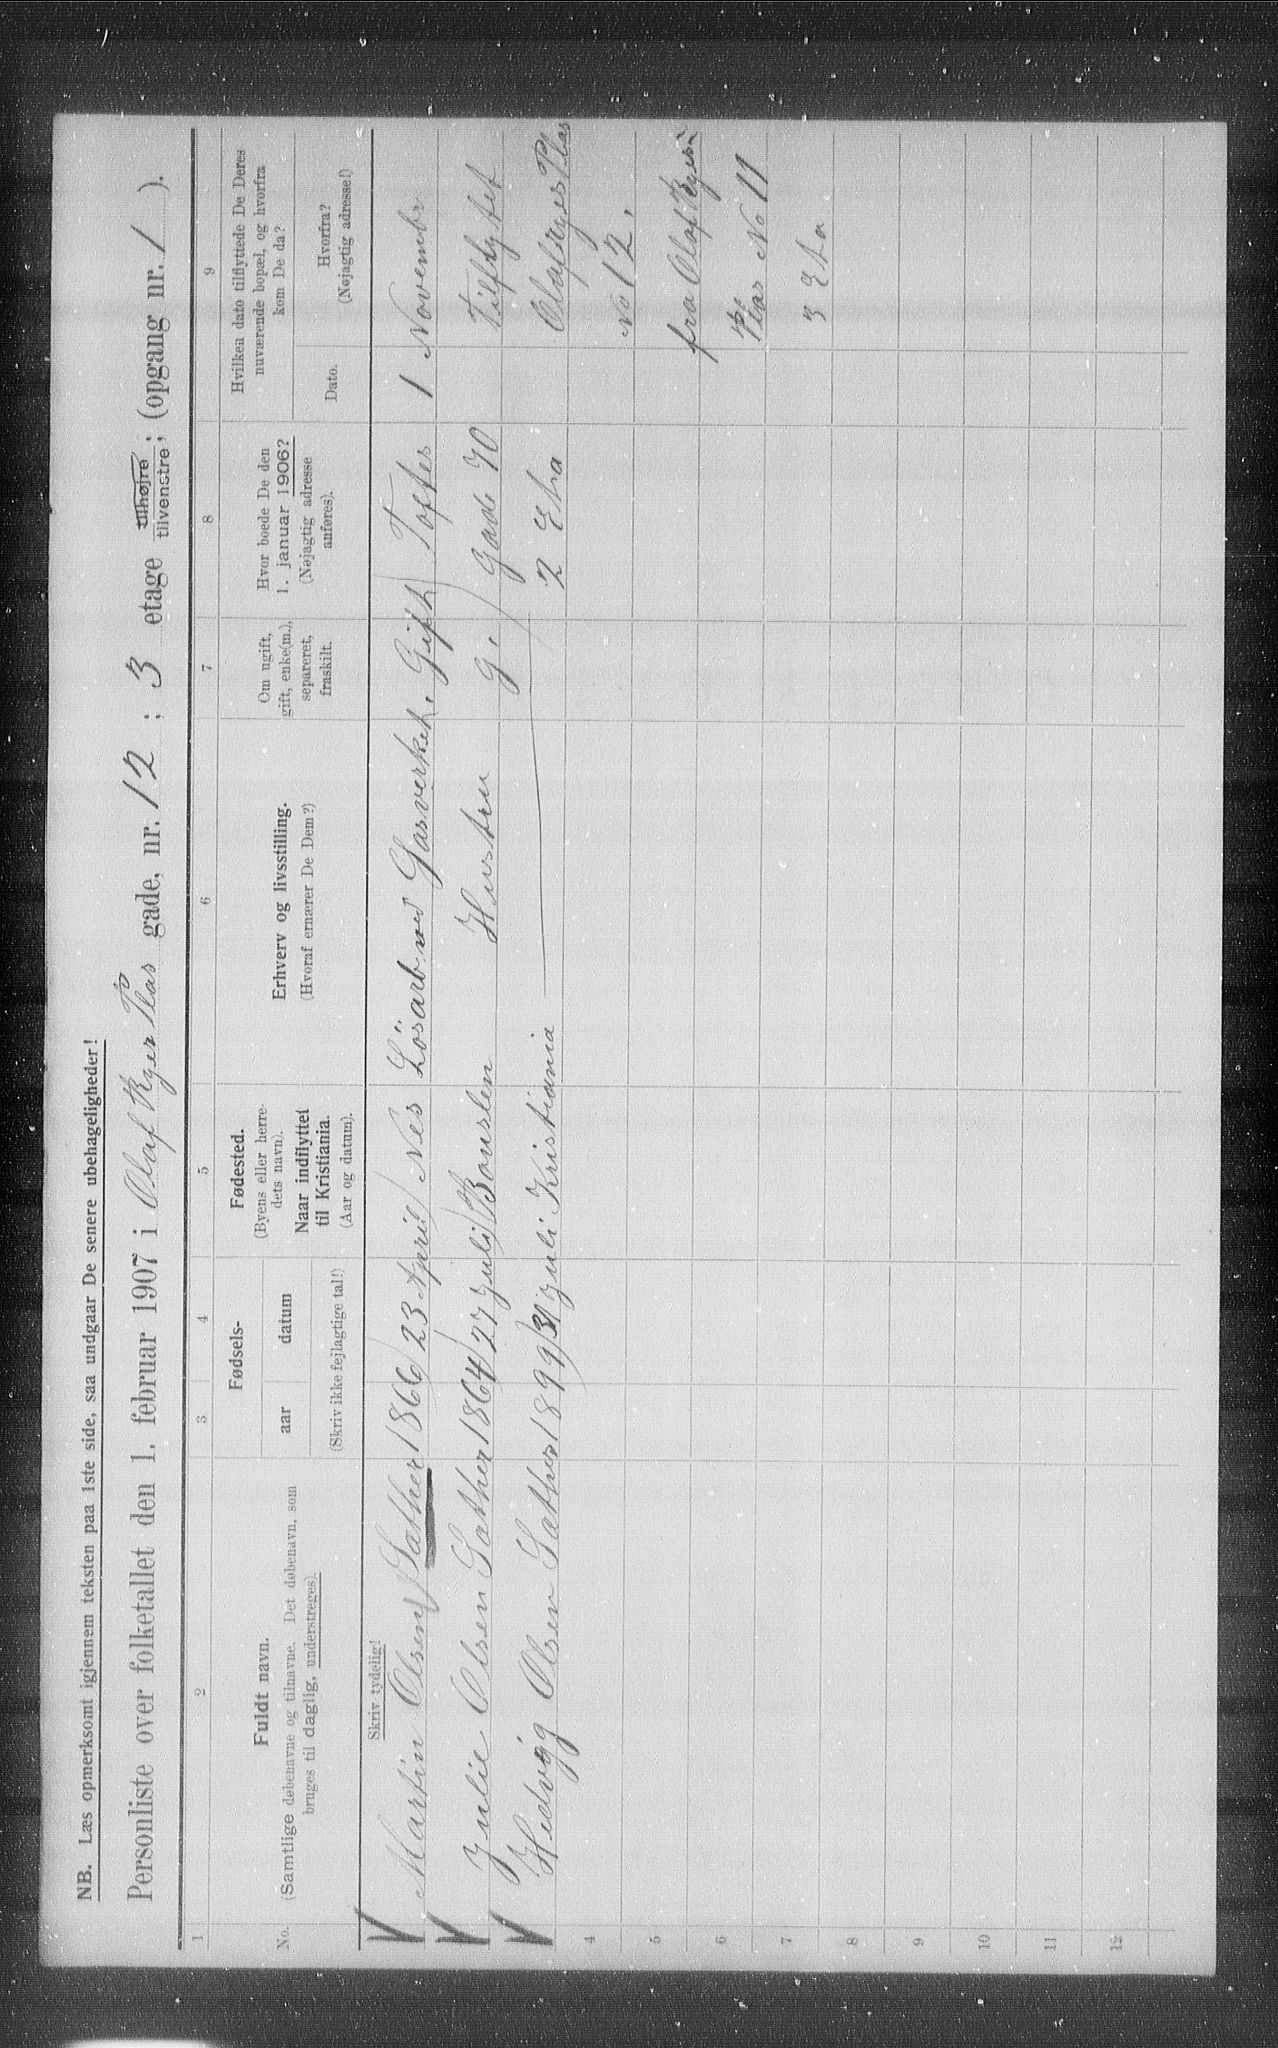 NB. Læs opmerksomt igjennem teksten paa 1ste side, saa undgaar De senere ubehageligheder!
Personliste over folketallet den 1. februar 1907 i Olaf Ryes Plas gade, nr. 12 ; 3 etage tilhøjre tilvenstre; (opgang nr. 1 ).
1 2 3 4 5 6 7 8 9
No.
Fuldt navn.
(Samtlige døbenavne og tilnavne. Det døbenavn, som
bruges til daglig, understreges).
Fødsels-
aar datum
(Skriv ikke fejlagtige tal!)
Fødested.
(Byens eller herre-
dets navn).
Naar indflyttet
til Kristiania.
(Aar og datum).
Erhverv og livsstilling.
(Hvoraf ernærer De Dem?)
Om ugift,
gift, enke(m.),
separeret,
fraskilt.
Hvor boede De den
1. januar 1906?
(Nøjagtig adresse
anføres).
Hvilken dato tilflyttede De Deres
nuværende bopæl, og hvorfra
kom De da?
Dato.
Hvorfra?
(Nøjagtig adresse!)
Skriv tydelig!
Martin Olsen Sæther 1866 23 April Nes Lösarb. ved Gasverket. Gift Toftes 1 November
Julie Olsen Sæther 1864 27 Juli Hustru G. Gade 70 Tilflytet
Hedvig Olsen Sæther 1899 31 Juli Kristiania 2 Eta Olafryes Plas
4 No 12.
5 fra Olaf Ryes
6 Plas No 11
7 3 Eta
8
9
10
11
12